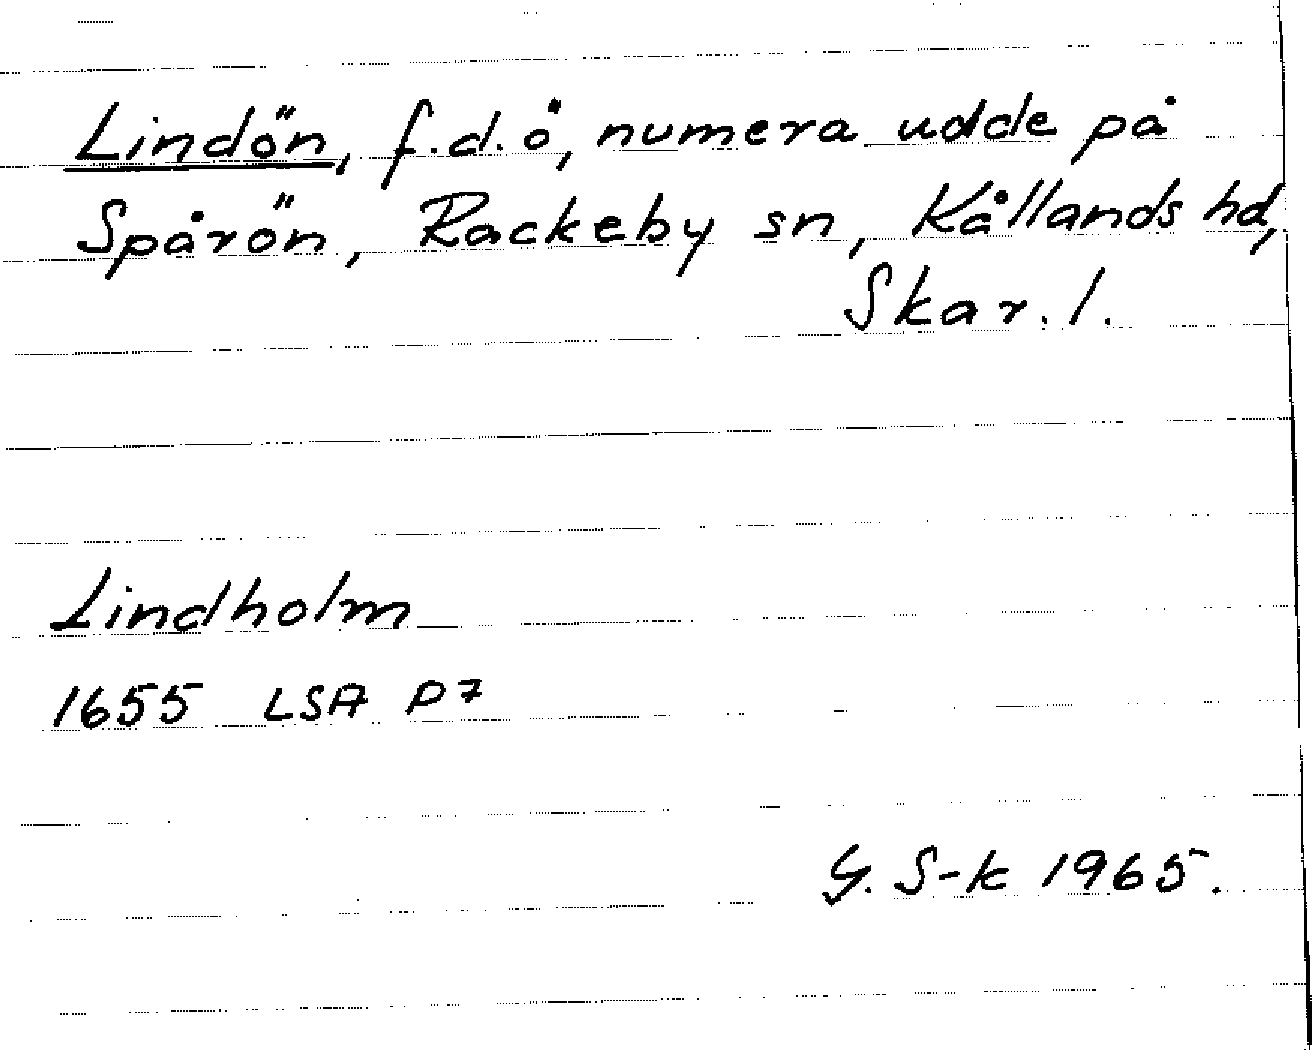 Lindön, f.d. ö, numera udde på
Spårön, Rackeby sn, Kållands hd,
Skar. l.
Lindholm
1655 LSA P7
G. S-k 1965.